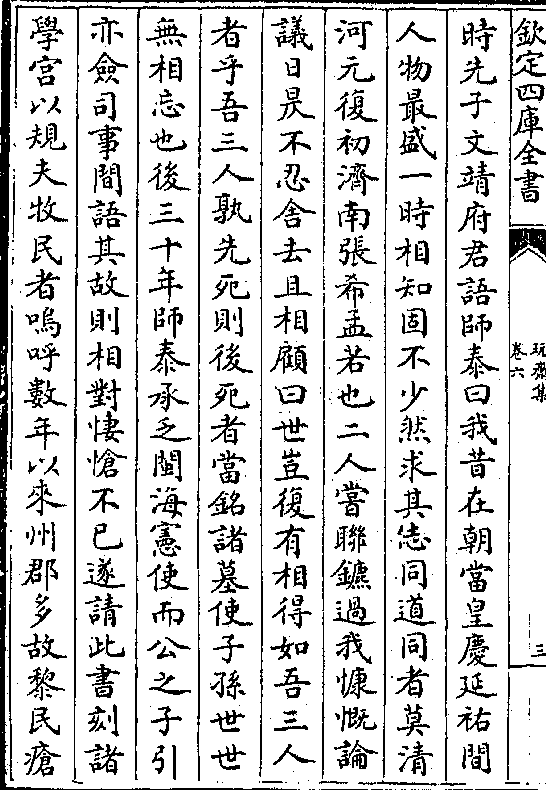 欽定四庫全書
玩齋集
卷六
三
時先子文靖府君語師泰曰我昔在朝當皇慶延祐間
人物最盛一時相知固不少然求其志同道同者莫清
河元復初濟南張希孟若也二人嘗聯鑣過我慷慨論
議日昃不忍舍去且相顧曰世豈復有相得如吾三人
者乎吾三人孰先死則後死者當銘諸墓使子孫世世
無相忘也後三十年師泰承乏閩海憲使而公之子引
亦僉司事間語其故則相對悽愴不已遂請此書刻諸
學宮以規夫牧民者嗚呼數年以來州郡多故黎民瘡